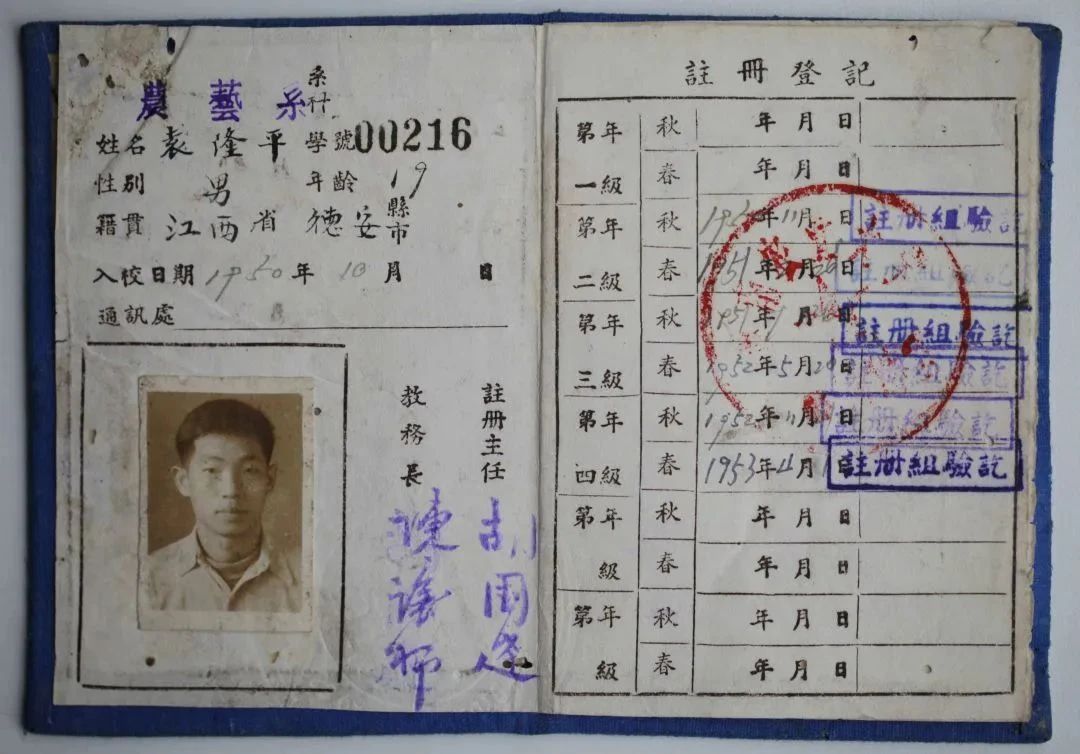 農藝系
系科
姓名 袁隆平 學號 00216
性別 男 年齡 19
籍貫 江西省 德安 縣市
入校日期 1950年 10月 日
通訊處
註册主任
教務長
註冊登記
第一年級 秋 年 月 日
春 年 月 日
第二年級 秋 年11月 日 註册組驗訖
春 1951年 月 日 註册組驗訖
第三年級 秋 1951年 月 日 註册組驗訖
春 1952年5月 日 註册組驗訖
第四年級 秋 1952年11月 日 註册組驗訖
春 1953年4月 註册組驗訖
第 年級 秋 年 月 日
春 年 月 日
第 年級 秋 年 月 日
春 年 月 日